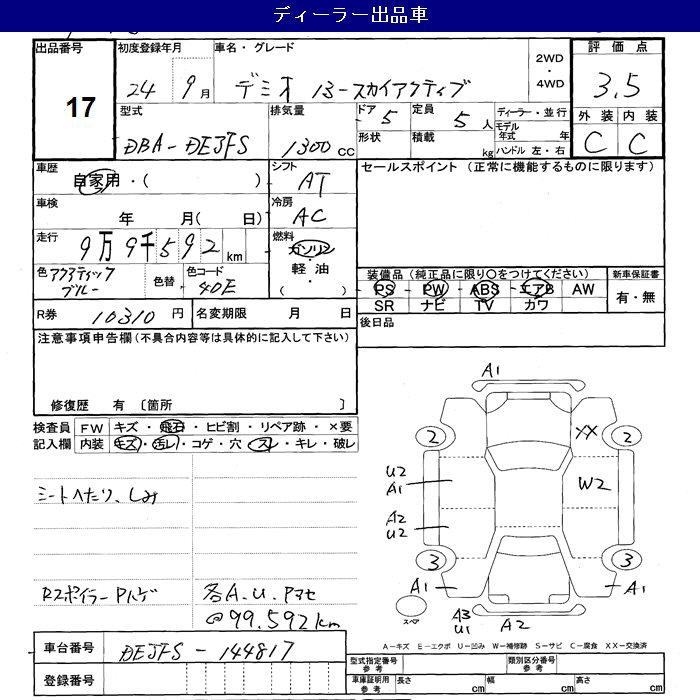 ディーラー出品車
出品番号
17
初度登録年月
24年9月
車名・グレード
デミオ 13-スカイアクティブ
2WD
・
4WD
評価点
3.5
外装 内装
C C
型式
DBA-DEJFS
排気量
1300cc
ドア 5
形状
定員 5人
積載 kg
ディーラー・並行
モデル年式 年
ハンドル 左・右
車歴
自家用・( )
シフト
AT
車検
年 月( 日)
冷房
AC
走行
9万9千592km
燃料
ガソリン
・
軽油
・
( )
色 アクアティックブルー
色替
色コード
40E
セールスポイント (正常に機能するものに限ります)
装備品(純正品に限り○をつけてください)
PS・PW・ABS・エアB AW
SR ナビ TV カワ
新車保証書
有・無
R券 10310円
名変期限 月 日
後日品
注意事項申告欄(不具合内容等は具体的に記入して下さい)
修復歴 有 〔箇所 〕
検査員記入欄
FW キズ・飛石・ヒビ割・リペア跡・×要
内装 キズ・汚レ・コゲ・穴・スレ・キレ・破レ
シートへたり、しみ
Rスポイラー Pハゲ
各A.U.Pマセ
@99.592km
A1
2
XX
2
U2
A1
W2
A2
U2
3
3
A1
A1
スペア
A3
U1
A2
A-キズ E-エクボ U-凹み W-補修跡 S-サビ C-腐食 XX-交換済
車台番号
DEJFS-144817
登録番号
型式指定番号 参考
類別区分番号 参考
車庫証明用 参考
長さ cm
幅 cm
高さ cm